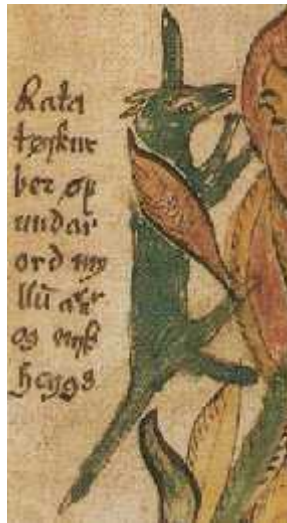 Rata
tøskur
ber øf
undar
ord my
llū arr
og nyk
heggs